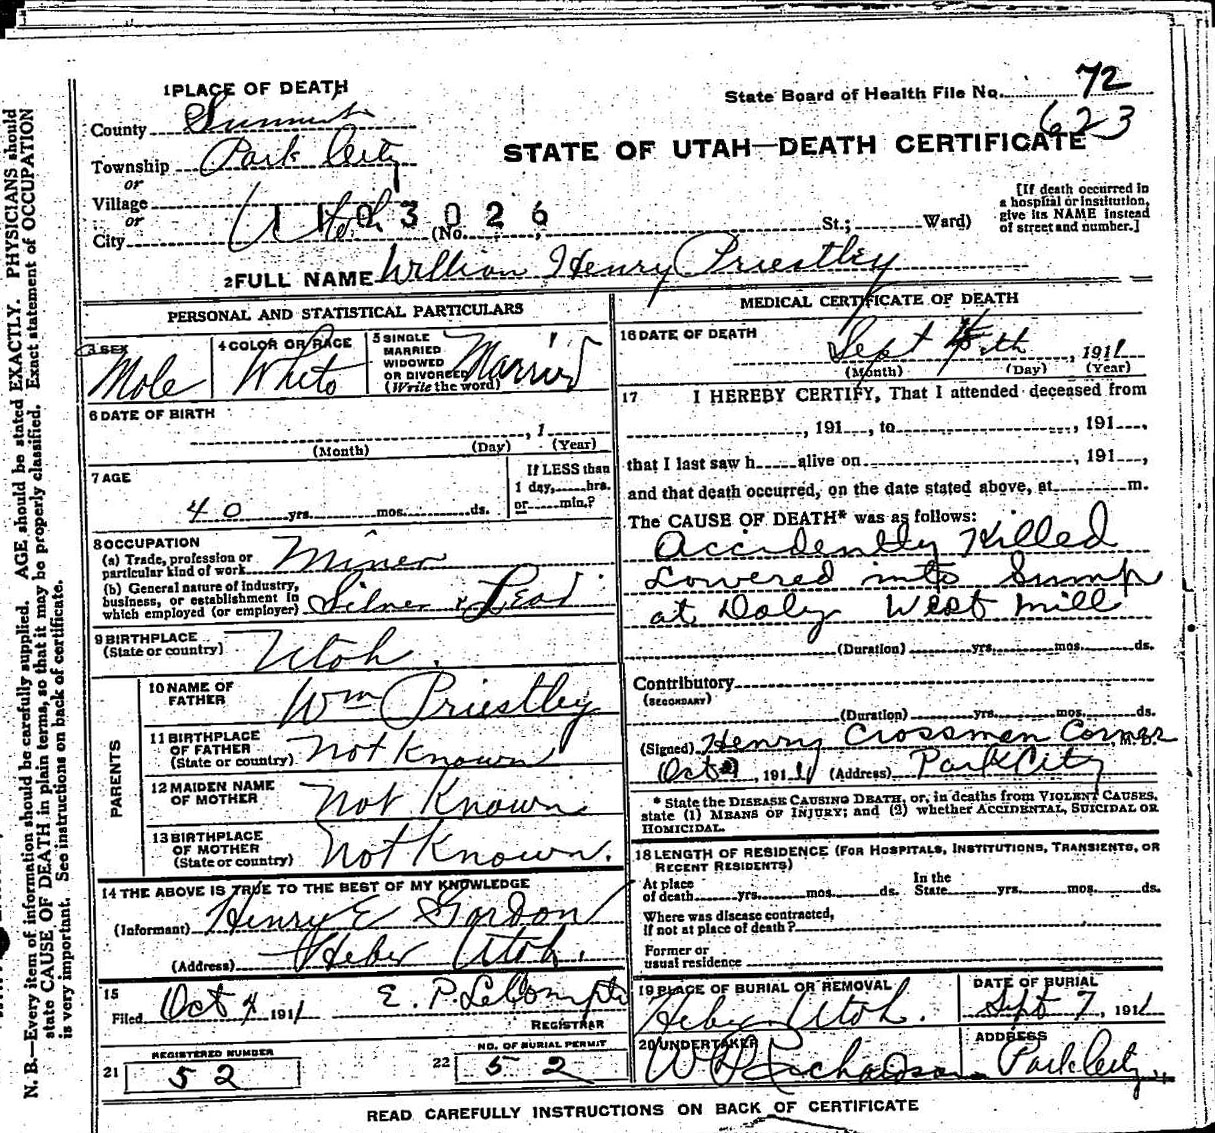 1 PLACE OF DEATH
State Board of Health File No. 72
623
County Summit
STATE OF UTAH—DEATH CERTIFICATE
Township Park City
or
Village
or
City Utah
1103026
(No. St.; Ward)
[If death occurred in a hospital or institution, give its NAME instead of street and number.]
2 FULL NAME William Henry Priestley
PERSONAL AND STATISTICAL PARTICULARS
3 SEX Male
4 COLOR OR RACE White
5 SINGLE MARRIED WIDOWED OR DIVORCED (Write the word) Married
6 DATE OF BIRTH
, 1
(Month) (Day) (Year)
7 AGE
40 yrs. mos. ds.
If LESS than 1 day, hrs. or min.?
8 OCCUPATION
(a) Trade, profession or particular kind of work Miner
(b) General nature of industry, business, or establishment in which employed (or employer) Silver & Lead
9 BIRTHPLACE (State or country) Utah.
PARENTS
10 NAME OF FATHER Wm Priestley
11 BIRTHPLACE OF FATHER (State or country) Not Known
12 MAIDEN NAME OF MOTHER Not Known
13 BIRTHPLACE OF MOTHER (State or country) Not Known.
14 THE ABOVE IS TRUE TO THE BEST OF MY KNOWLEDGE
(Informant) Henry E Gordon
(Address) Heber Utah.
15
Filed Oct 1911 E. P. LeCompte
REGISTRAR
21 REGISTERED NUMBER 52
22 NO. OF BURIAL PERMIT 52
MEDICAL CERTIFICATE OF DEATH
16 DATE OF DEATH
Sept th, 1911
(Month) (Day) (Year)
17 I HEREBY CERTIFY, That I attended deceased from
, 191 , to , 191 ,
that I last saw h alive on , 191 ,
and that death occurred, on the date stated above, at m.
The CAUSE OF DEATH* was as follows:
Accidently Killed
Lowered into Sump
at Daly West Mill
(Duration) yrs. mos. ds.
Contributory
(SECONDARY)
(Duration) yrs. mos. ds.
(Signed) Henry Crossman Corner M. D.
Oct 1911 (Address) Park City
* State the DISEASE CAUSING DEATH, or, in deaths from VIOLENT CAUSES, state (1) MEANS OF INJURY; and (2) whether ACCIDENTAL, SUICIDAL OR HOMICIDAL.
18 LENGTH OF RESIDENCE (FOR HOSPITALS, INSTITUTIONS, TRANSIENTS, OR RECENT RESIDENTS)
At place of death yrs. mos. ds. In the State yrs. mos. ds.
Where was disease contracted, if not at place of death?
Former or usual residence
19 PLACE OF BURIAL OR REMOVAL
Heber Utah.
DATE OF BURIAL
Sept 7, 1911
20 UNDERTAKER
W Richardson
ADDRESS
Park City
READ CAREFULLY INSTRUCTIONS ON BACK OF CERTIFICATE
N. B.—Every item of information should be carefully supplied. AGE should be stated EXACTLY. PHYSICIANS should
state CAUSE OF DEATH in plain terms, so that it may be properly classified. Exact statement of OCCUPATION
is very important. See instructions on back of certificate.